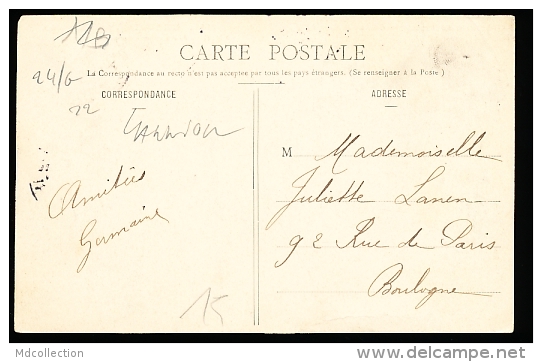 CARTE POSTALE
La Correspondance au recto n'est pas acceptée par tous les pays étrangers. (Se renseigner à la Poste)
CORRESPONDANCE
ADRESSE
24/6
22
Amitiés
Germaine
15
M Mademoiselle
Juliette Lanen
92 Rue de Paris
Boulogne
Mdcollection
delcampe.net